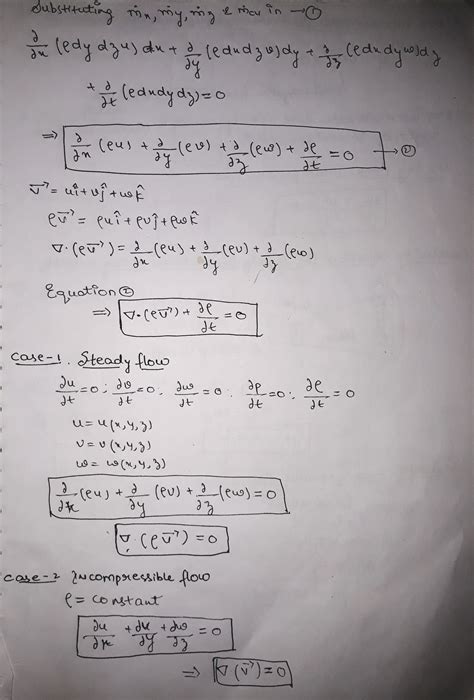 Substituting ṁx, ṁy, ṁz & ṁcv in → ①
∂/∂x (ρdy dzu) dx + ∂/∂y (ρdxdzv)dy + ∂/∂z (ρdxdyw)dz
+ ∂/∂t (ρdxdydz) = 0
⇒ ∂/∂x (ρu) + ∂/∂y (ρv) + ∂/∂z (ρw) + ∂ρ/∂t = 0 → ②
V⃗ = uî + vĵ + wk̂
ρV⃗ = ρuî + ρvĵ + ρwk̂
∇·(ρV⃗) = ∂/∂x (ρu) + ∂/∂y (ρv) + ∂/∂z (ρw)
Equation ②
⇒ ∇·(ρV⃗) + ∂ρ/∂t = 0
Case-1. Steady flow
∂u/∂t = 0; ∂v/∂t = 0; ∂w/∂t = 0; ∂p/∂t = 0; ∂ρ/∂t = 0
u = u(x,y,z)
v = v(x,y,z)
w = w(x,y,z)
∂/∂x (ρu) + ∂/∂y (ρv) + ∂/∂z (ρw) = 0
∇·(ρV⃗) = 0
Case-2 Incompressible flow
ρ = constant
∂u/∂x + ∂u/∂y + ∂w/∂z = 0
⇒ ∇(V⃗) = 0